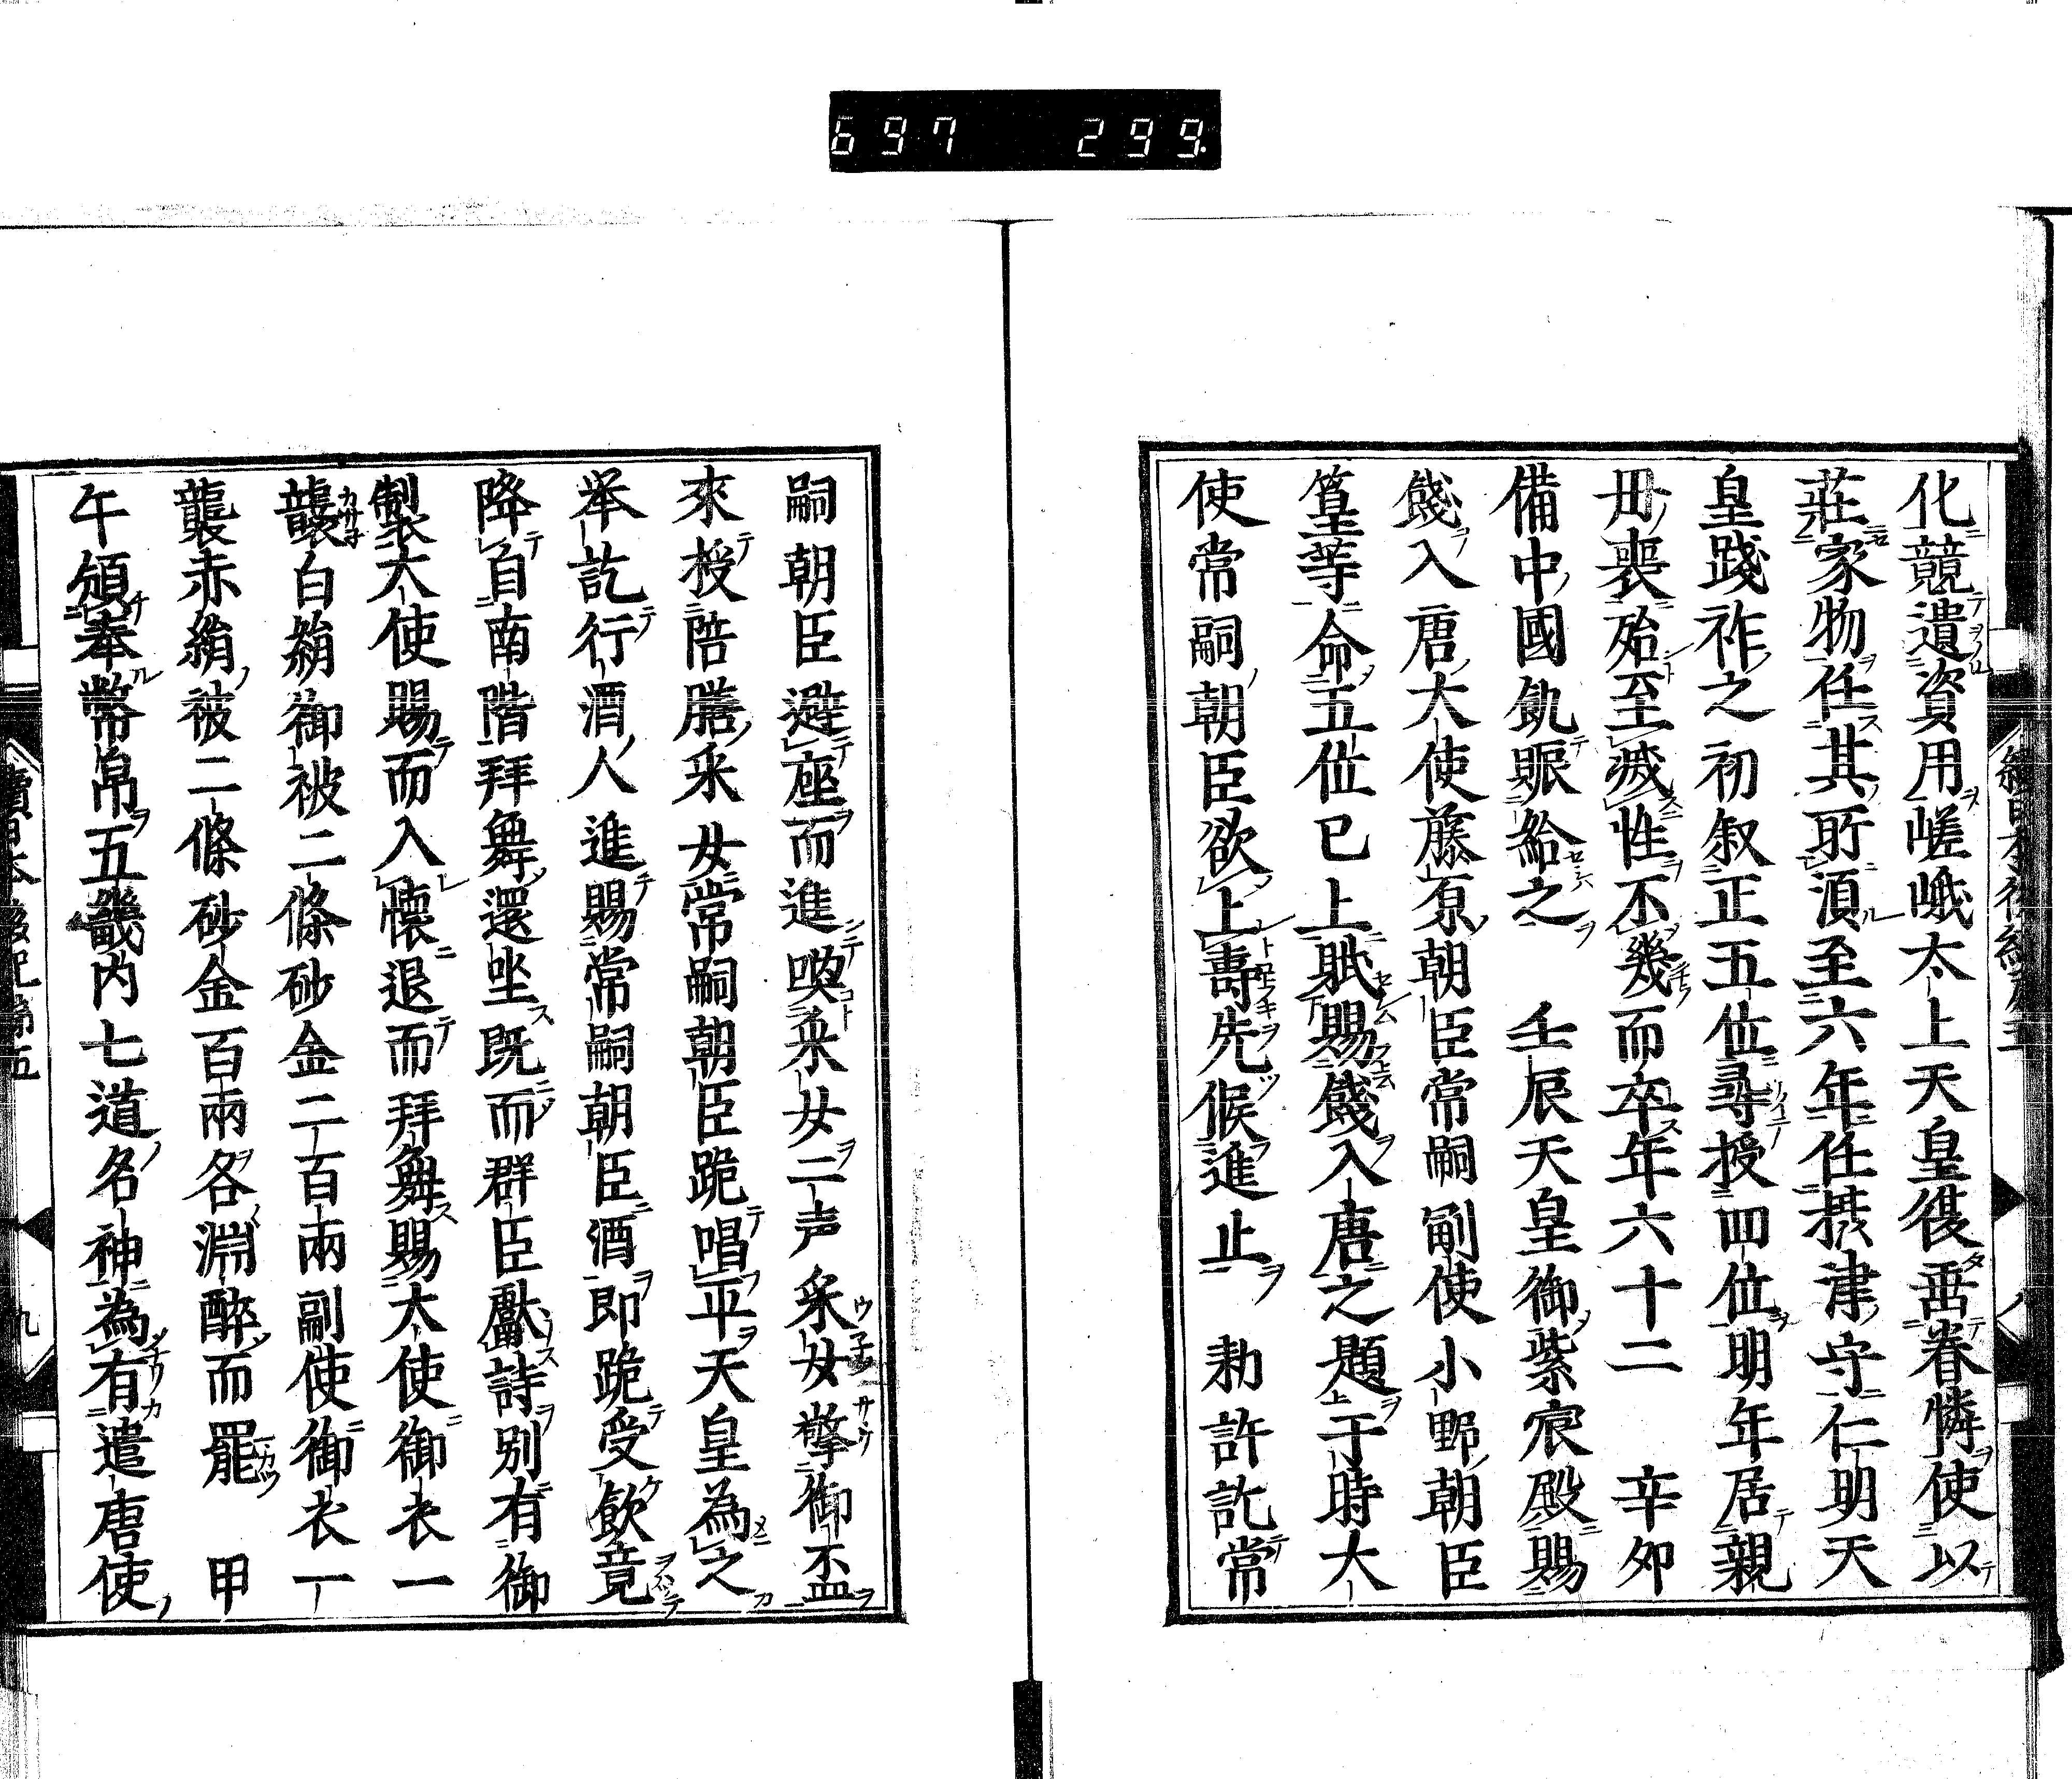 697 299.
化競遺資用嵯峨太上天皇復垂眷憐使以
莊家物任其所湏至六年任攝津守仁明天
皇踐祚之初叙正五位尋授四位明年居親
毋喪殆至滅性不幾而卒年六十二 辛夘
備中國飢賑給之 壬辰天皇御紫宸殿賜
餞入唐大使藤原朝臣常嗣副使小野朝臣
篁等命五位已上賦賜餞入唐之題于時大
使常嗣朝臣欲上壽先候進止 勅許訖常
嗣朝臣避座而進喚采女二声采女擎御盃
來授陪膳采女常嗣朝臣跪唱平天皇為之
举訖行酒人進賜常嗣朝臣酒即跪受飲竟
降自南階拜舞還坐既而群臣獻詩別有御
製大使賜而入懷退而拜舞賜大使御衣一
襲白絹御被二條砂金二百兩副使御衣一
襲赤絹被二條砂金百兩各淵醉而罷 甲
午頒奉幣帛五畿内七道名神為有遣唐使